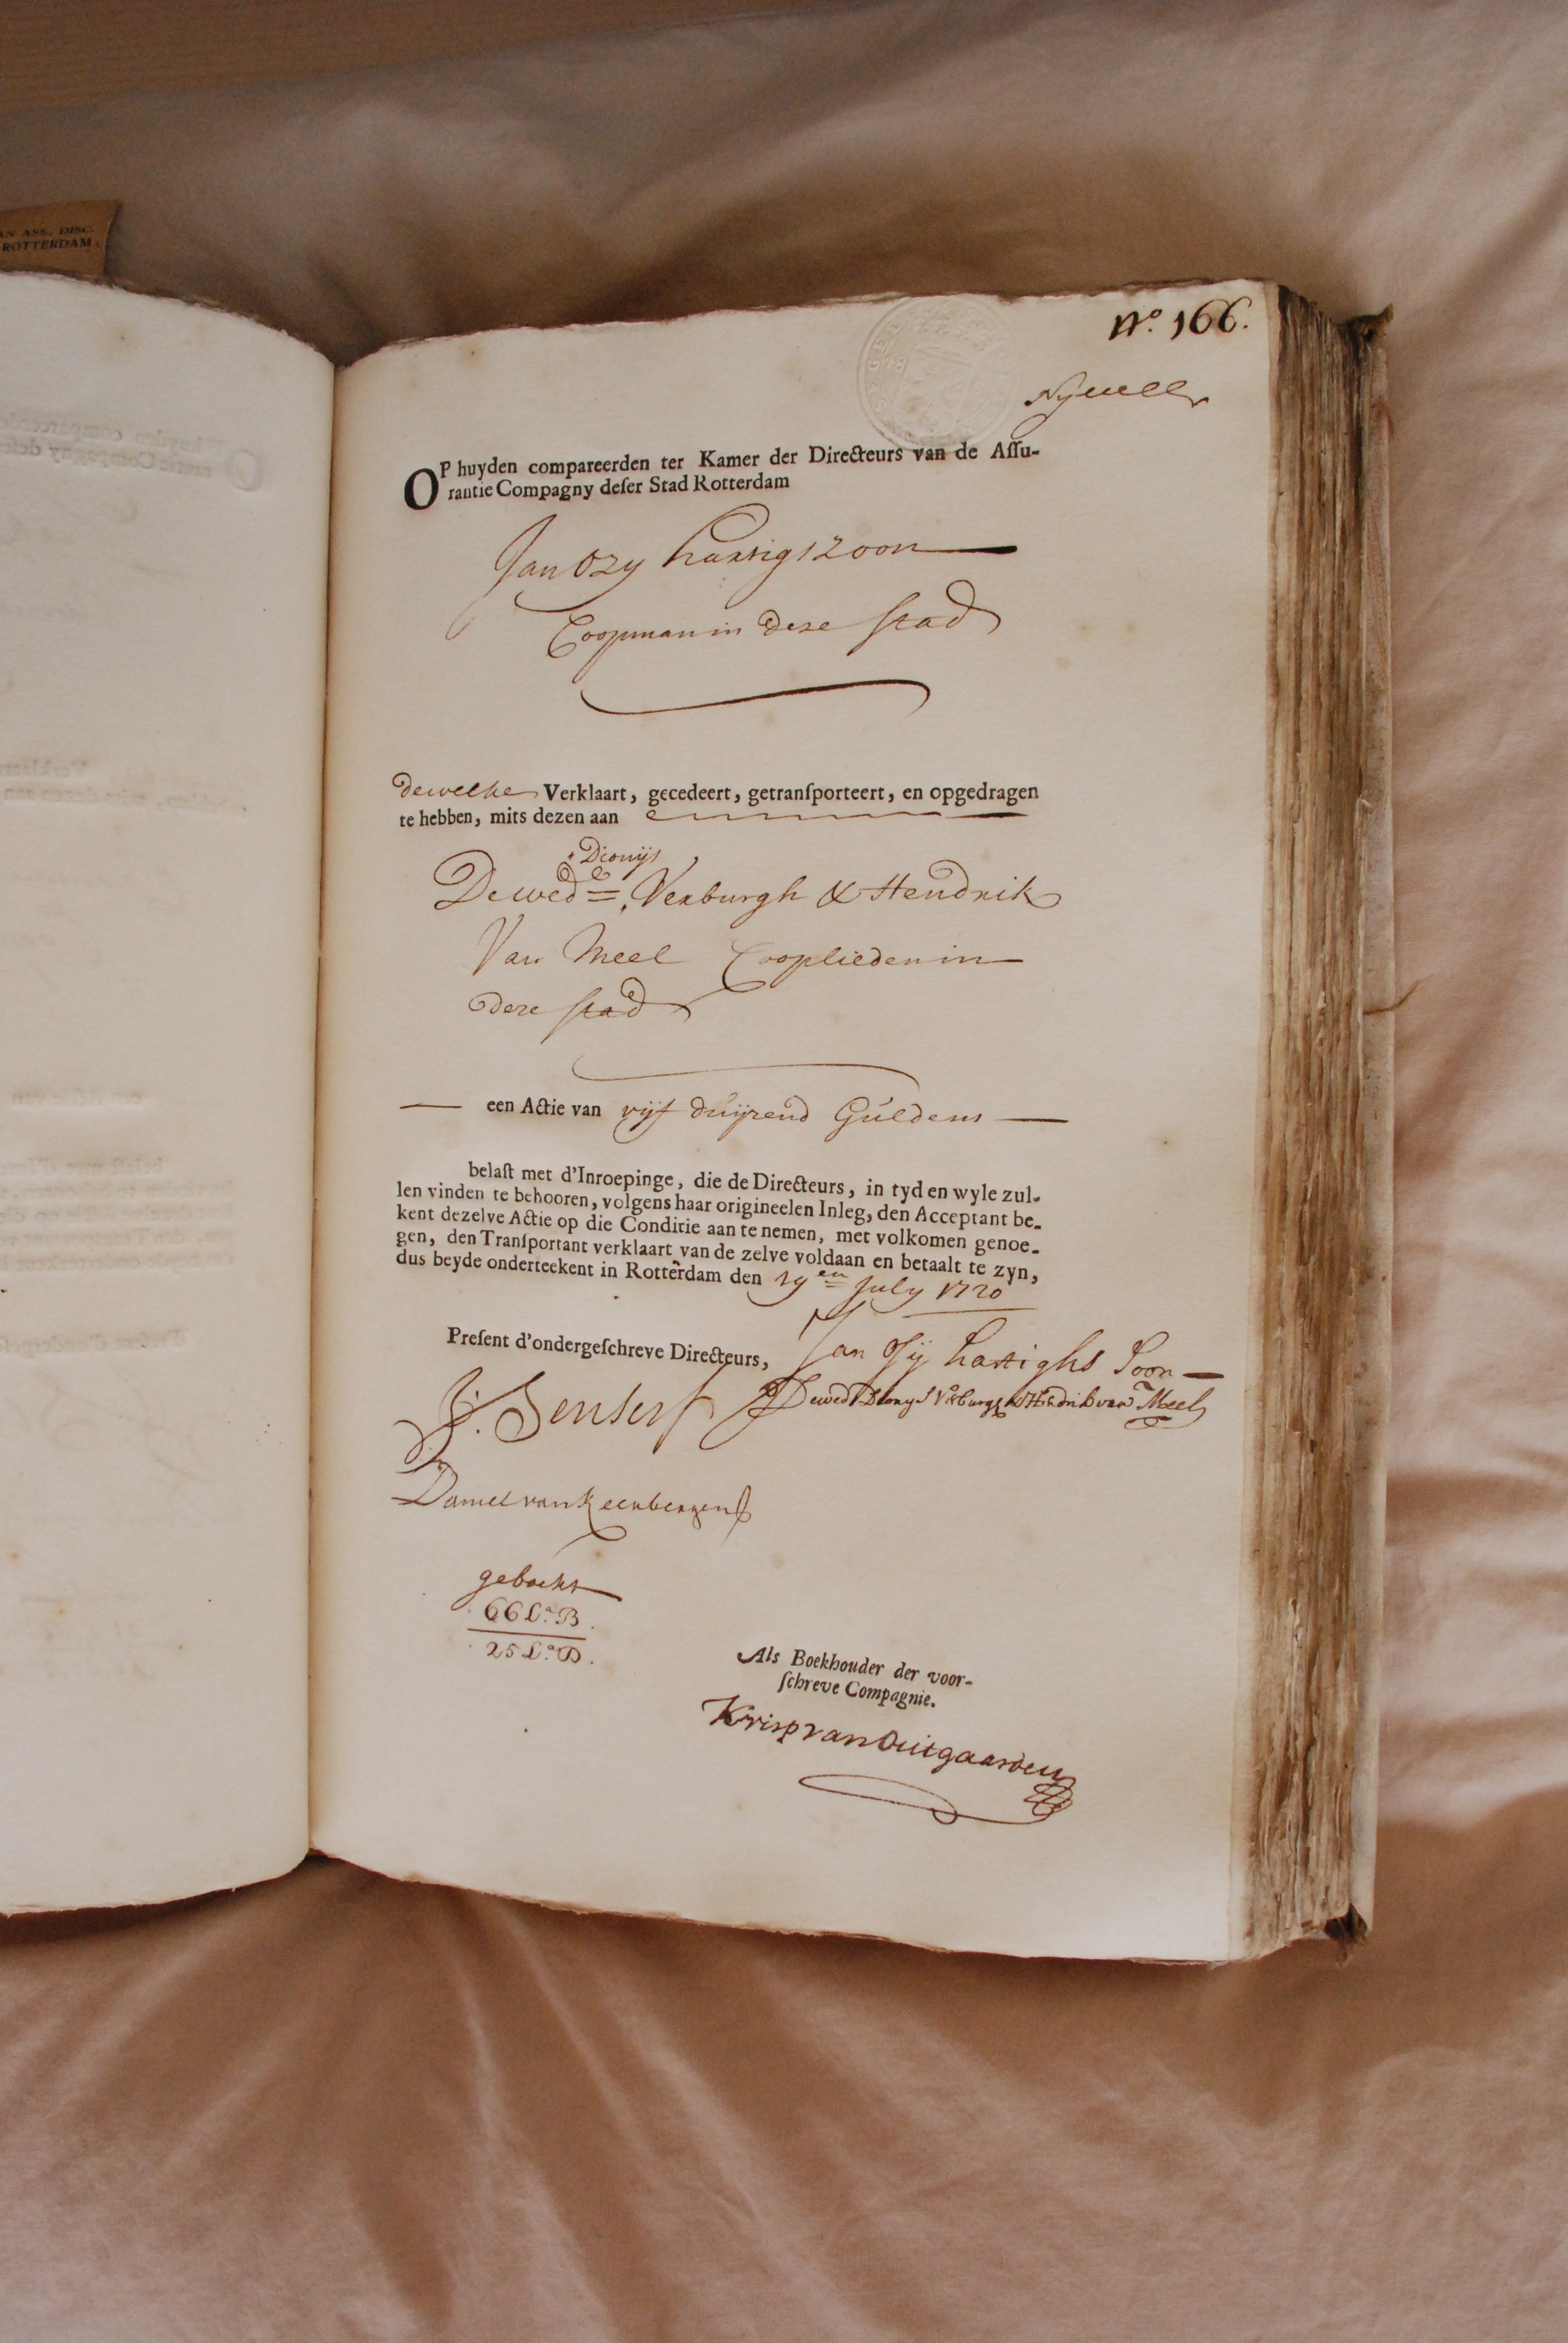 AN ASS., DISC.
ROTTERDAM.
No. 166.
OP huyden compareerden ter Kamer der Directeurs van de Aſſu-
rantie Compagny deſer Stad Rotterdam
Jan Ozy hartigszoon
Coopman in deze stad
dewelke Verklaart, gecedeert, getranſporteert, en opgedragen
te hebben, mits dezen aan
Dionijs
De wede Verburgh & Hendrik
Van Meel Cooplieden in
deze stad
een Actie van vijf duijzend Guldens
belaſt met d'Inroepinge, die de Directeurs, in tyd en wyle zul-
len vinden te behooren, volgens haar origineelen Inleg, den Acceptant be-
kent dezelve Actie op die Conditie aan te nemen, met volkomen genoe-
gen, den Tranſportant verklaart van de zelve voldaan en betaalt te zyn,
dus beyde onderteekent in Rotterdam den 19en July 1720
Preſent d'ondergeſchreve Directeurs,
Jan Osij hartighs Soon
J. Senserf
De wed Dionys Verburgh & Hendrik van Meel
Daniel van Keerbergen
geboekt
66 La. B.
25 La. D.
Als Boekhouder der voor-
ſchreve Compagnie.
Krisp van Outgaarden